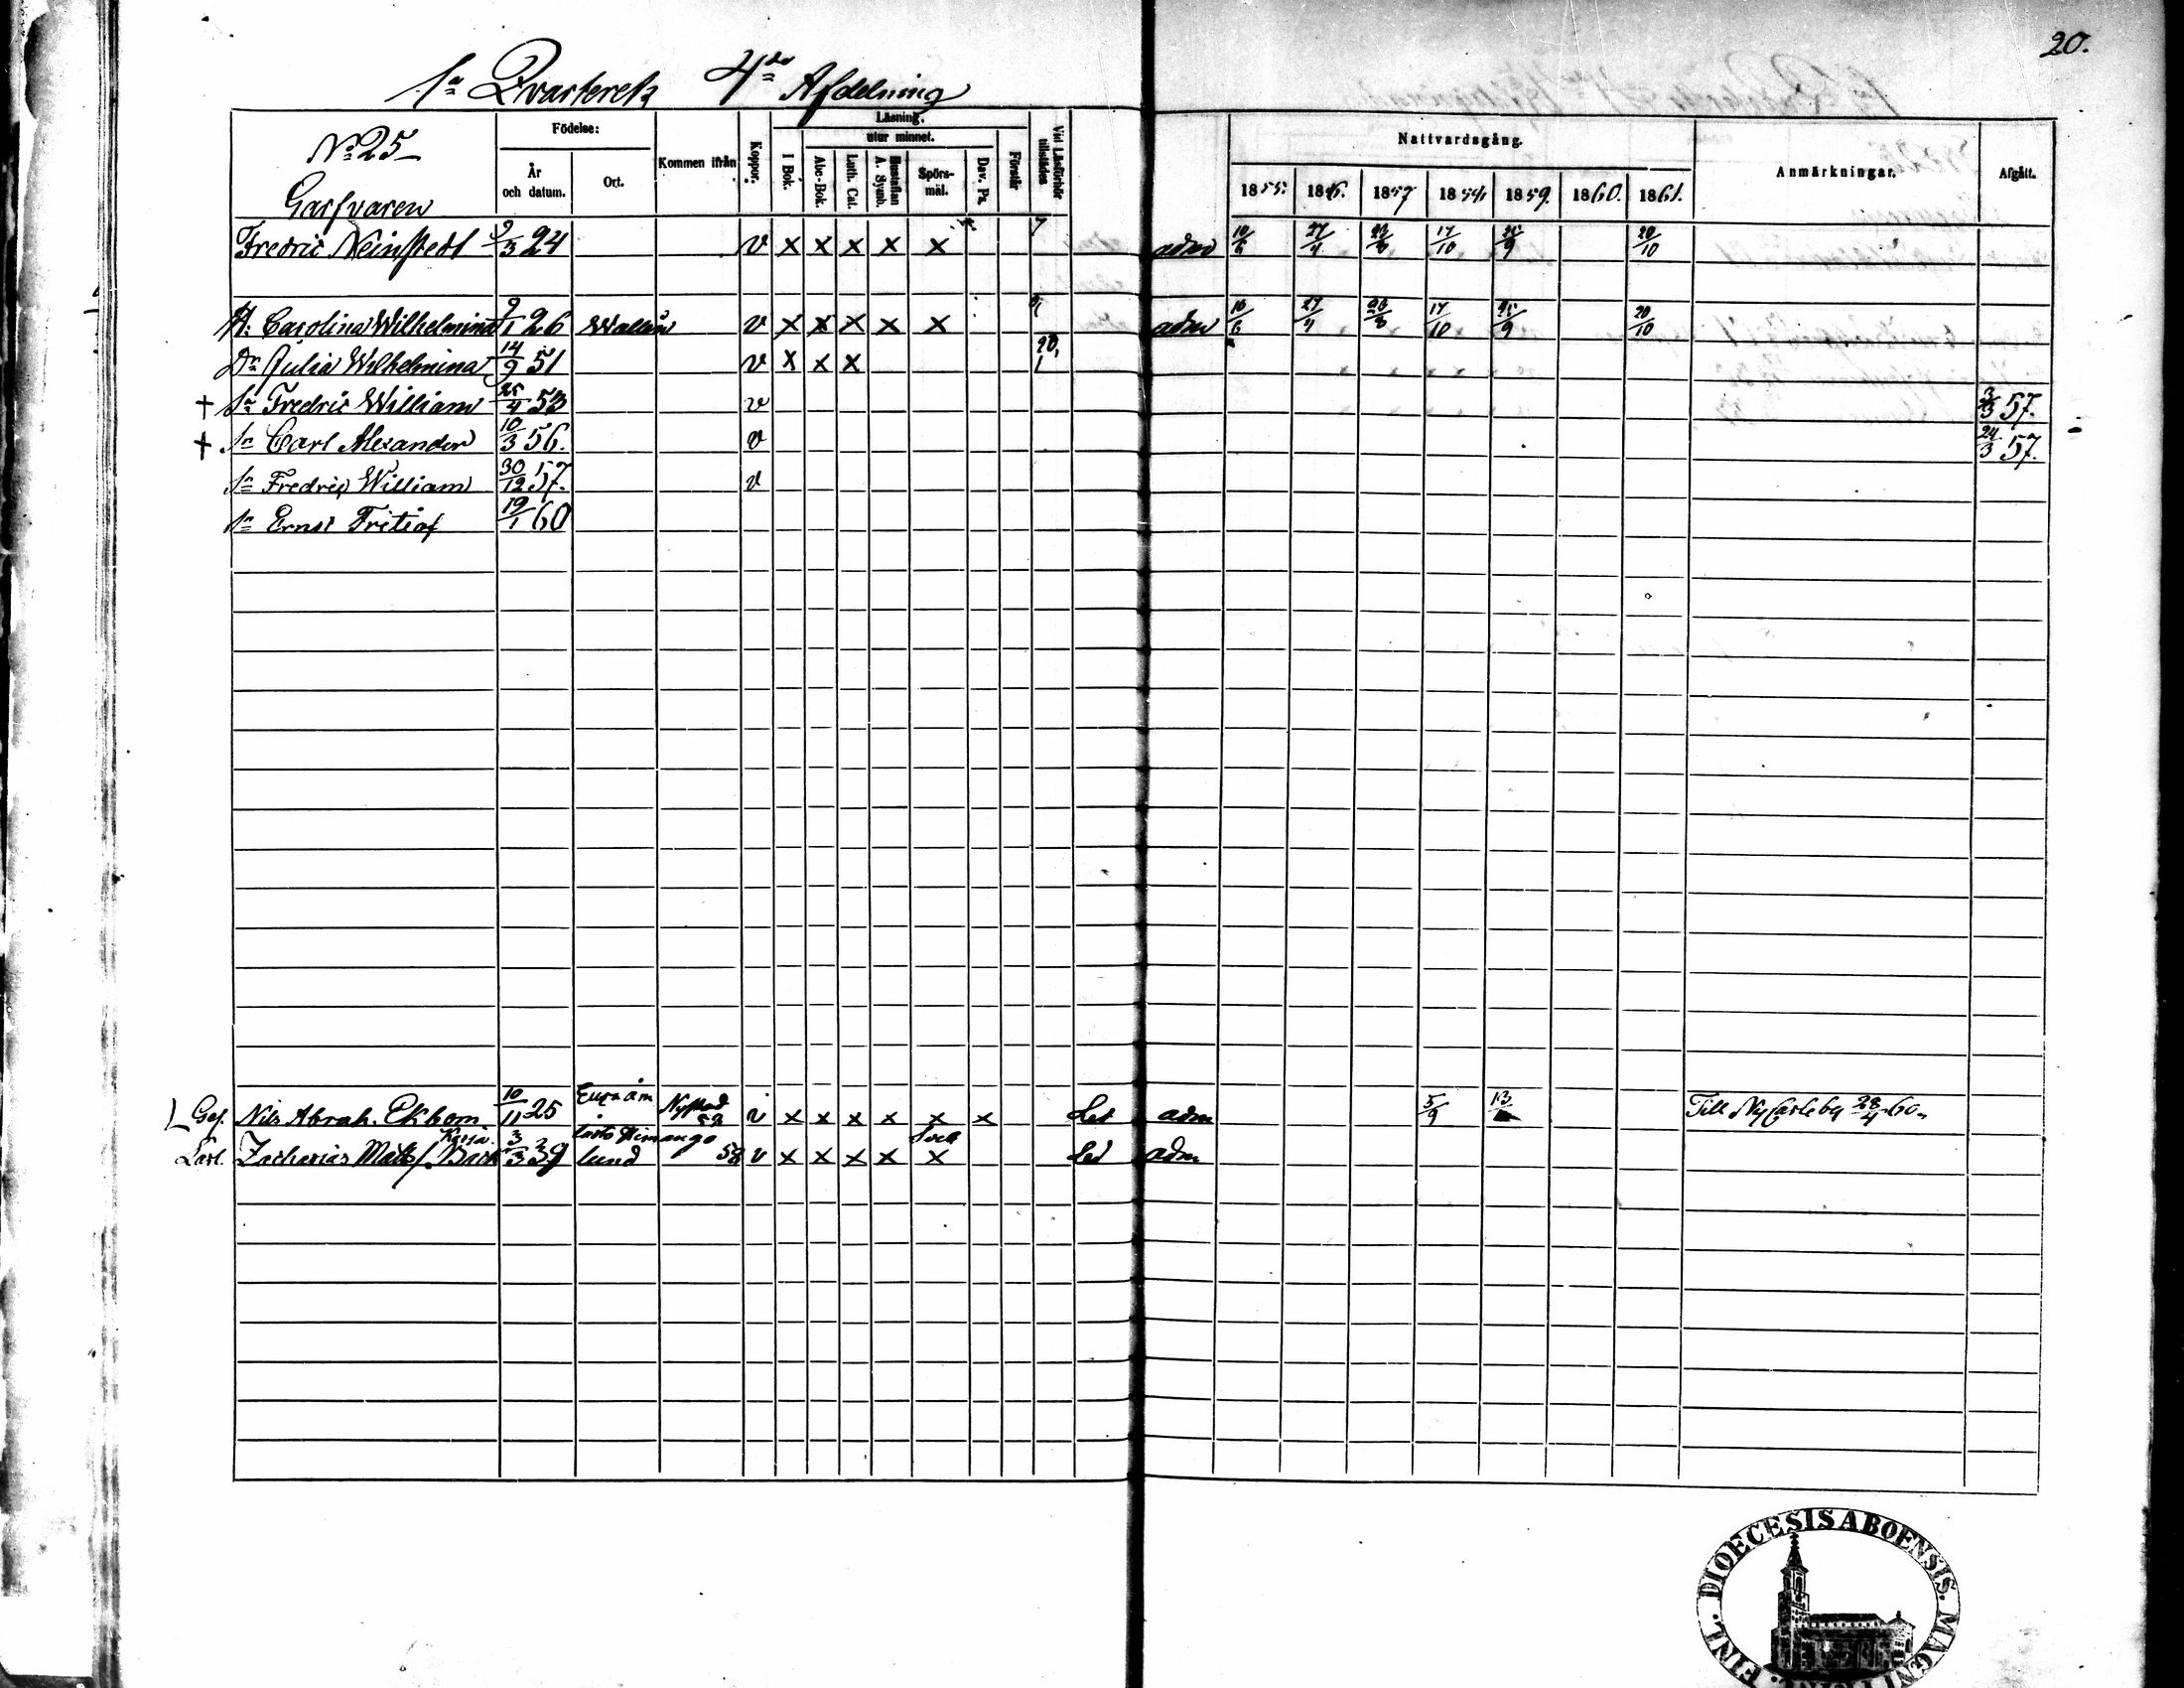 20.
1a Qvarteret 4de Afdelning
No 25
Garfvaren
Födelse:
År och datum.
Ort.
Kommen ifrån
Koppor.
Läsning.
utur minnet.
I Bok.
Abc-Bok.
Luth. Cat.
Hustaflan A. Symb.
Spörs-mål.
Dav. Ps.
Förstår
Vid Läsförhör tillstädes
Nattvardsgång.
1855. 1856. 1857 1858 1859. 1860. 1861.
Anmärkningar.
Afgått.
Fredric Neinstedt 9/3 24 v x x x x x adm 10/6 27/4 23/8 17/10 25/9 20/10
H: Carolina Wilhelmina 9/1 26 Wallin v x x x x x adm 10/6 27/4 23/8 17/10 25/9 20/10
Dr Julia Wilhelmina 14/9 51 v x x x
† Sn Fredric William 25/4 53 v 3/3 57.
† Sn Carl Alexander 10/3 56. v 24/3 57.
Sn Fredric William 30/12 57. v
Sn Ernst Fritiof 19/1 60
Ges. Nils Abrah. Ekbom 10/11 25 Nystad 58 v x x x x x x Led adm 5/9 13 Till NyCarleby 28/4 60.
Lärl. Zacharias Matts. 3/3 39 lund Himango 58 v x x x x x Led adm
FINL. DIOECESIS ABOENSIS. MAGNI